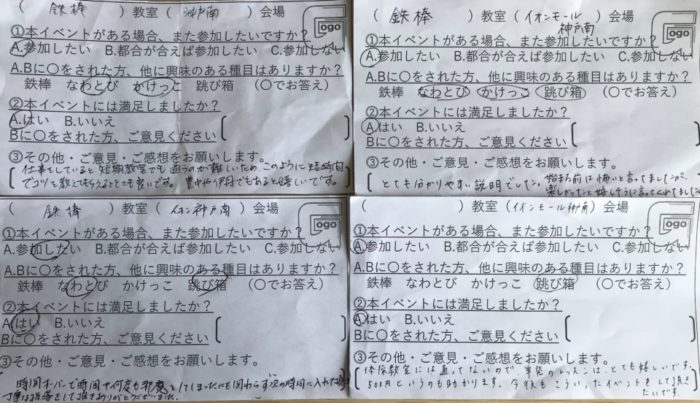 ( 鉄棒 ) 教室 ( 神戸南 ) 会場
logo
①本イベントがある場合、また参加したいですか？
A.参加したい B.都合が合えば参加したい C.参加しない
A.Bに〇をされた方、他に興味のある種目はありますか？
鉄棒 なわとび かけっこ 跳び箱 (〇でお答え)
②本イベントには満足しましたか？
A.はい B.いいえ
Bに〇をされた方、ご意見ください
③その他・ご意見・ご感想をお願いします。
仕事をしていると短期教室でも通うのが難しいため、このように短時間
でコツを教えてもらえるととても良いです。
でもあると嬉しいです。
( 鉄棒 ) 教室 ( イオンモール神戸南 ) 会場
logo
①本イベントがある場合、また参加したいですか？
A.参加したい B.都合が合えば参加したい C.参加しない
A.Bに〇をされた方、他に興味のある種目はありますか？
鉄棒 なわとび かけっこ 跳び箱 (〇でお答え)
②本イベントには満足しましたか？
A.はい B.いいえ
Bに〇をされた方、ご意見ください
③その他・ご意見・ご感想をお願いします。
とても分かりやすい説明でした。始まる前は怖いと言ってましたが、
楽しかったと嬉しそうに言ってくれました
( 鉄棒 ) 教室 ( イオン神戸南 ) 会場
logo
①本イベントがある場合、また参加したいですか？
A.参加したい B.都合が合えば参加したい C.参加しない
A.Bに〇をされた方、他に興味のある種目はありますか？
鉄棒 なわとび かけっこ 跳び箱 (〇でお答え)
②本イベントには満足しましたか？
A.はい B.いいえ
Bに〇をされた方、ご意見ください
③その他・ご意見・ご感想をお願いします。
時間オーバーで時間や何度も邪魔をしてしまったにも関わらず次の時間に入れた
丁寧な指導をして頂きありがとうございました。
( ) 教室 ( イオンモール神戸南 ) 会場
logo
①本イベントがある場合、また参加したいですか？
A.参加したい B.都合が合えば参加したい C.参加しない
A.Bに〇をされた方、他に興味のある種目はありますか？
鉄棒 なわとび かけっこ 跳び箱 (〇でお答え)
②本イベントには満足しましたか？
A.はい B.いいえ
Bに〇をされた方、ご意見ください
③その他・ご意見・ご感想をお願いします。
体操教室には通ってないので、単発のレッスンはとても嬉しいです。
500円というのも助かります。今後もこういったイベントをして頂き
たいです。